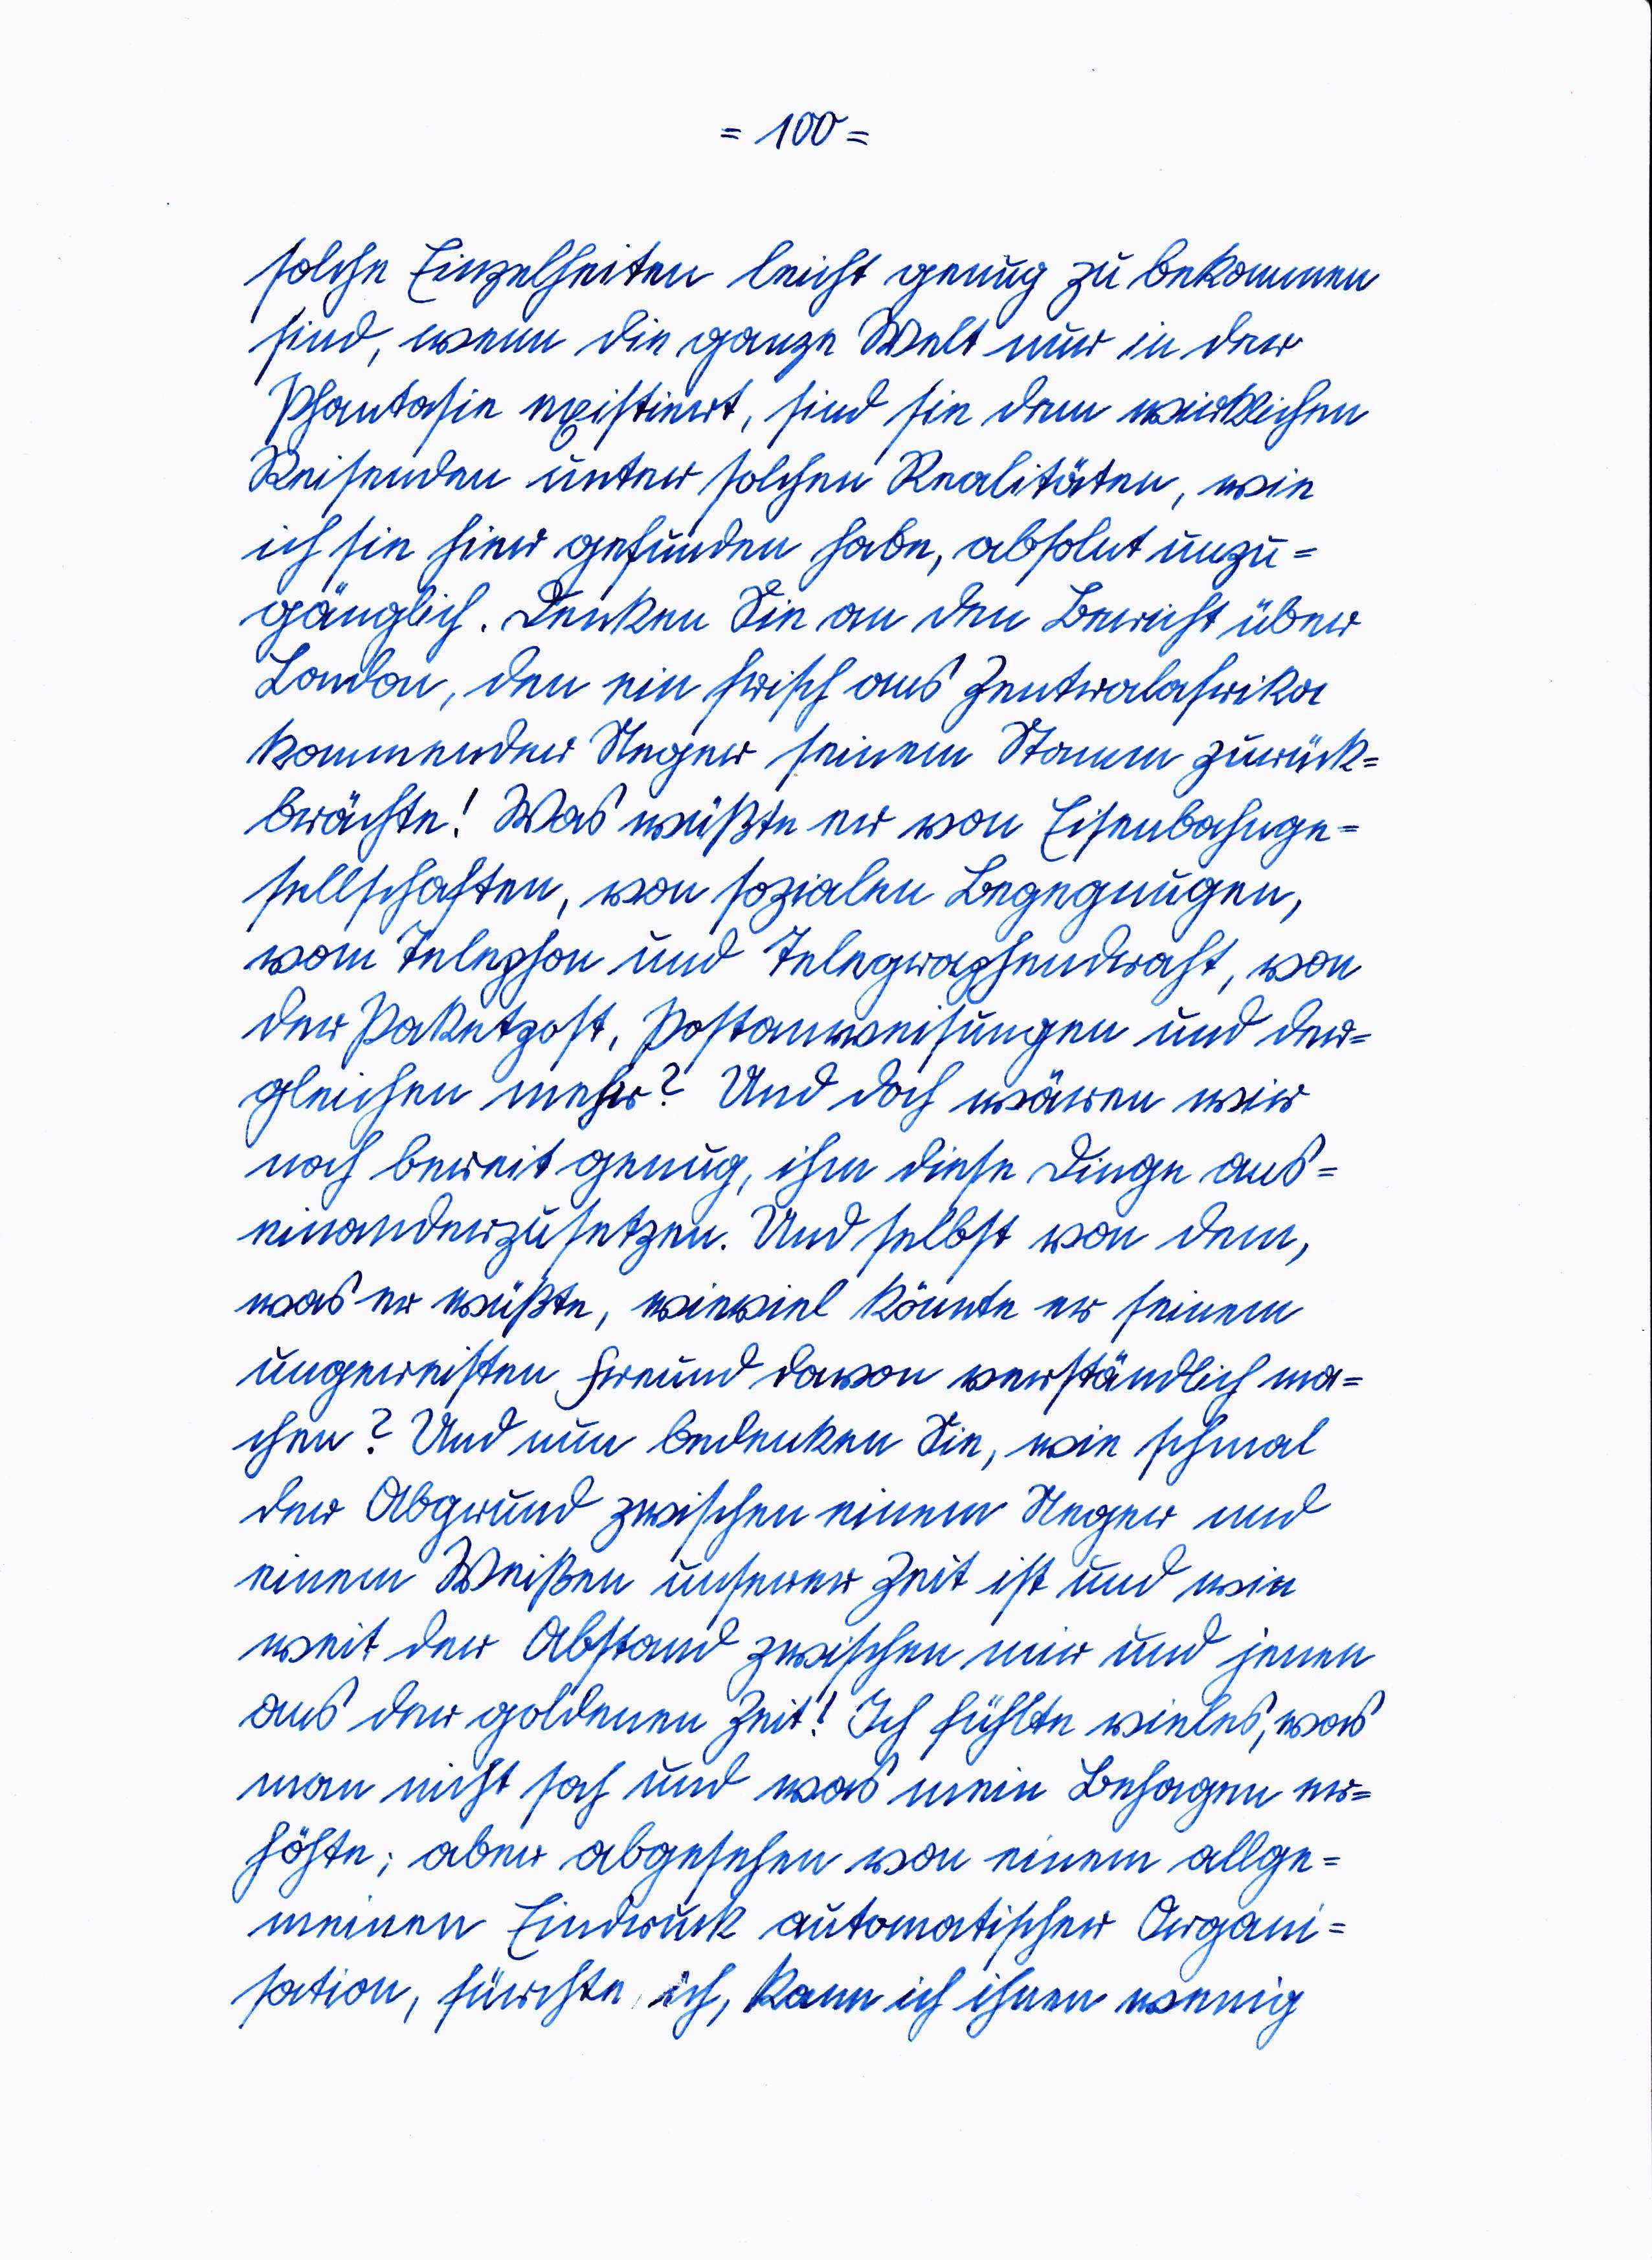 = 100 =
solche Einzelheiten leicht genug zu bekommen
sind, wenn die ganze Welt nur in der
Phantasie existiert, sind sie dem wirklichen
Reisenden unter solchen Realitäten, wie
ich sie hier gefunden habe, absolut unzu=
gänglich. Denken Sie an den Bericht über
London, den ein frisch aus Zentralafrika
kommender Neger seinem Stamm zurück=
brächte! Was wüßte er von Eisenbahnge=
sellschaften, von sozialen Begegnugen,
vom Telephon und Telegraphendraht, von
der Paketpost, Postanweisungen und der=
gleichen mehr? Und doch wären wir
noch bereit genug, ihm diese Dinge aus=
einanderzusetzen. Und selbst von dem,
was er wüßte, wieviel könnte er seinem
ungereisten Freund davon verständlich ma=
chen? Und nun bedenken Sie, wie schmal
der Abgrund zwischen einem Neger und
einem Weißen unserer Zeit ist und wie
weit der Abstand zwischen mir und jenen
aus der goldenen Zeit! Ich fühlte vieles, was
man nicht sah und was mein Behagen er=
höhte; aber abgesehen von einem allge=
meinen Eindruck automatischer Organi=
sation, fürchte ich, kann ich ihnen wenig